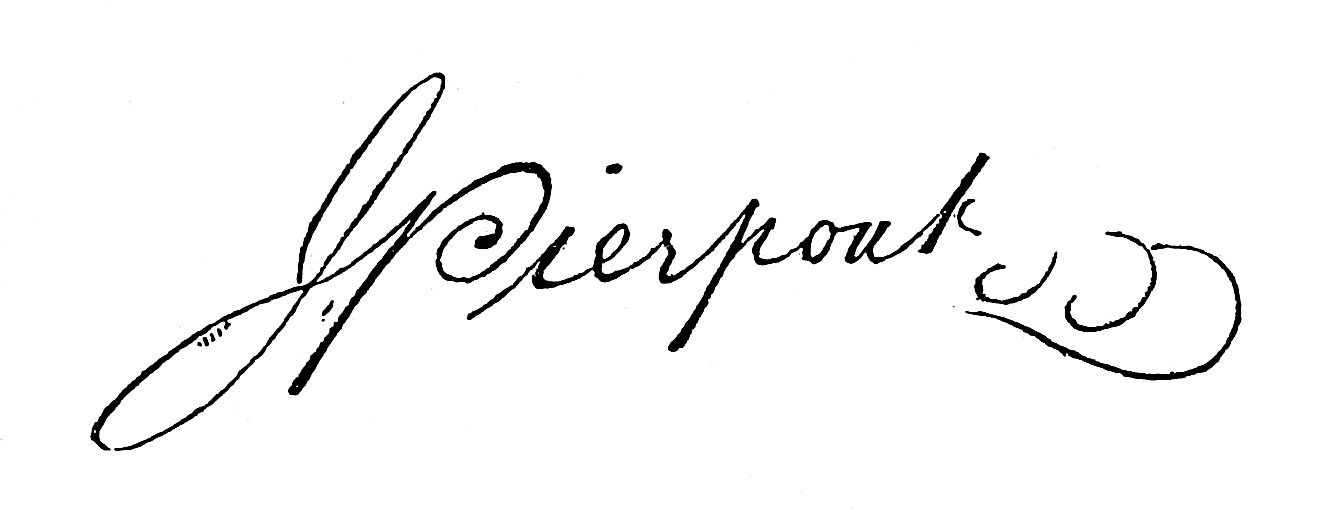 J. Pierpont